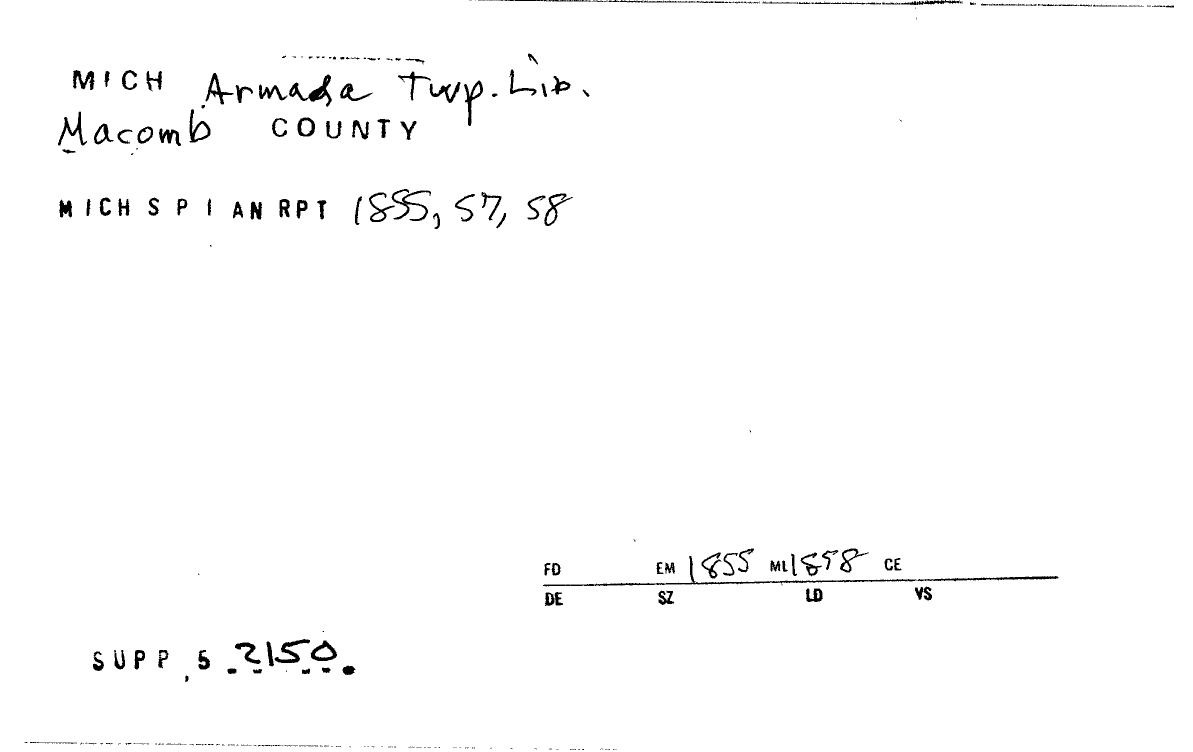 MICH Armada Twp. Lib.
Macomb COUNTY
MICH S P I AN RPT 1855, 57, 58
FD EM 1855 ML 1858 CE
DE SZ LD VS
SUPP, 5 2150.